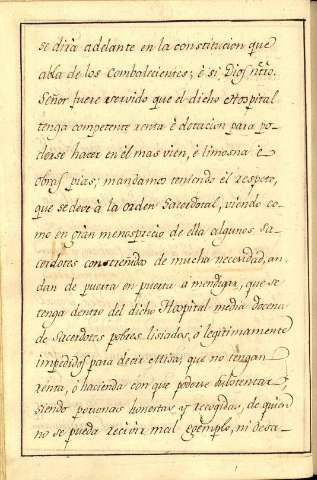 se dira adelante en la constitucion que
abla de los Combalecientes; è si Dios ñtrō.
Señor fuere servido que el dicho Hospital
tenga competente renta è dotacion para po-
derse hacer en èl mas vien, è limosna è
obras pias; mandamos teniendo èl respeto,
que se deve à la orden Sacerdotal, viendo co-
mo en gran menosprecio de ella algunos Sa-
cerdotes constreñidos de mucha necesidad, an-
dan de puerta en puerta a mendigar, que se
tenga dentro del dicho Hospital media docena
de Sacerdotes pobres, lisiados, ò legitimamente
impedidos para decir Misa, que no tengan
renta, ò hacienda con que poderse sustentar
siendo personas honestas, y recogidas, de quien
no se pueda recivir mal exemplo, ni desa-